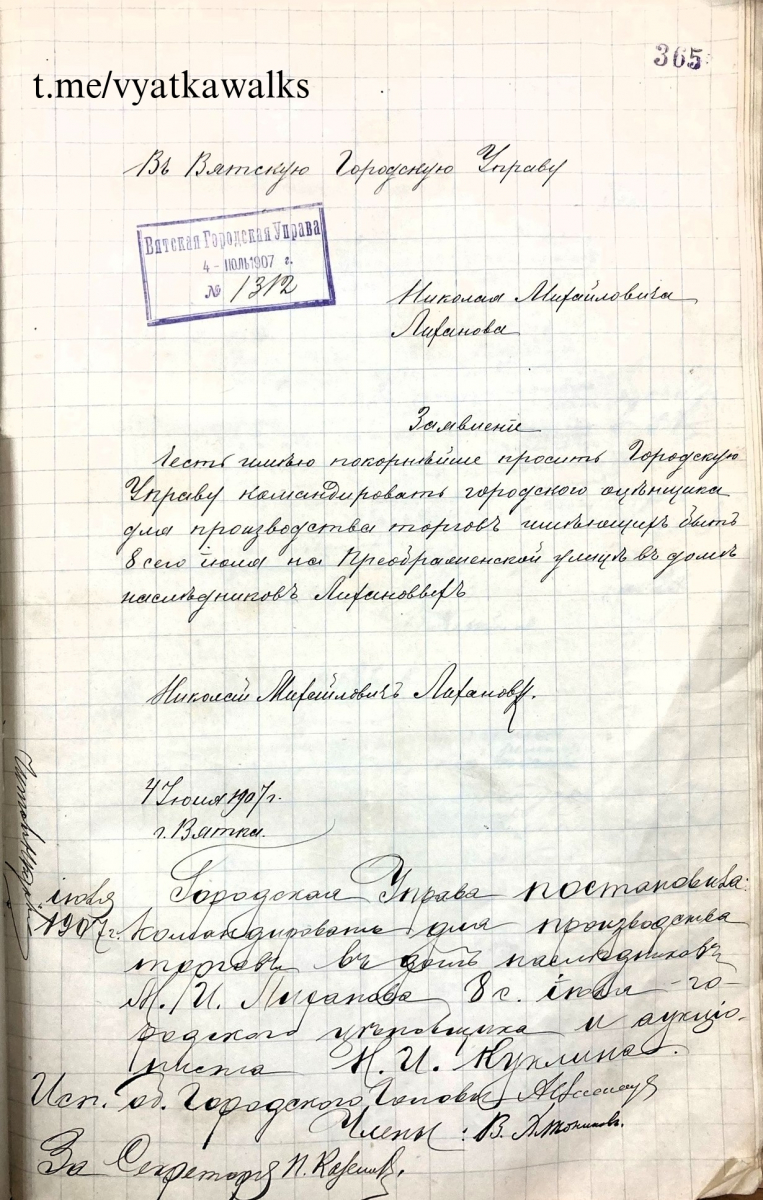 365
t.me/vyatkawalks
Въ Вятскую Городскую Управу
Вятская Городская Управа
4 - ІЮЛЬ 1907 г.
№ 1312
Николая Михайловича
Лиханова
Заявленіе
Честь имѣю покорнѣйше просить Городскую
Управу командировать городского оцѣнщика
для производства торговъ имѣющихъ быть
8 сего іюля на Преображенской улицѣ въ домѣ
наслѣдниковъ Лихановыхъ
Николай Михайловичъ Лихановъ.
4 Іюля 1907 г.
г. Вятка.
іюля
1907 г.
Городская Управа постановила:
командировать для производства
торговъ въ домъ наслѣдниковъ
М. И. Лиханова 8 с. іюля го-
родского цѣновщика и аукціо-
ниста Н. И. Куклина.
Исп. об. Городского Головы
Члены: В.
За Секретаря